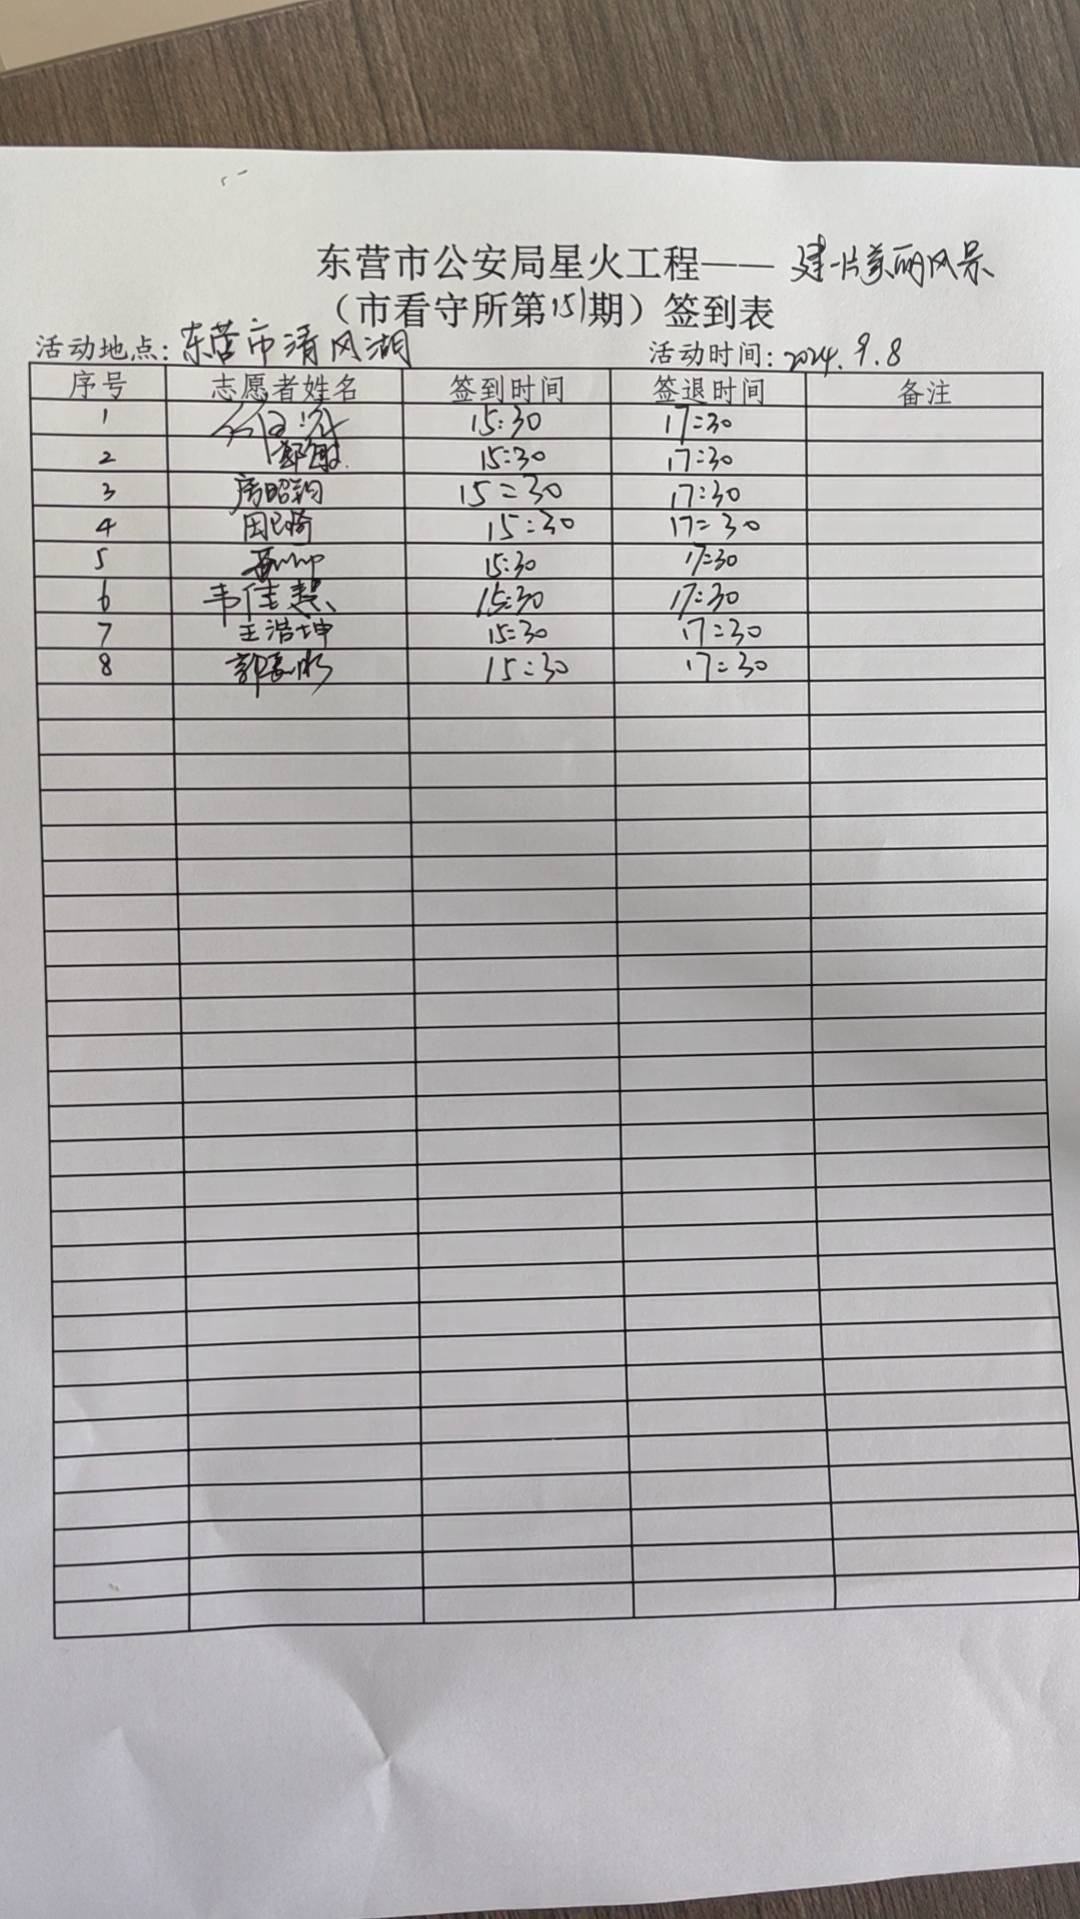 东营市公安局星火工程—— 建一片美丽风景
（市看守所第151期）签到表
活动地点：东营市清风湖 活动时间：2024.9.8
序号 志愿者姓名 签到时间 签退时间 备注
1 15:30 17:30
2 郭敏 15:30 17:30
3 房昭钧 15:30 17:30
4 田 15:30 17:30
5 15:30 17:30
6 韦佳慧 15:30 17:30
7 王浩坤 15:30 17:30
8 郭 15:30 17:30